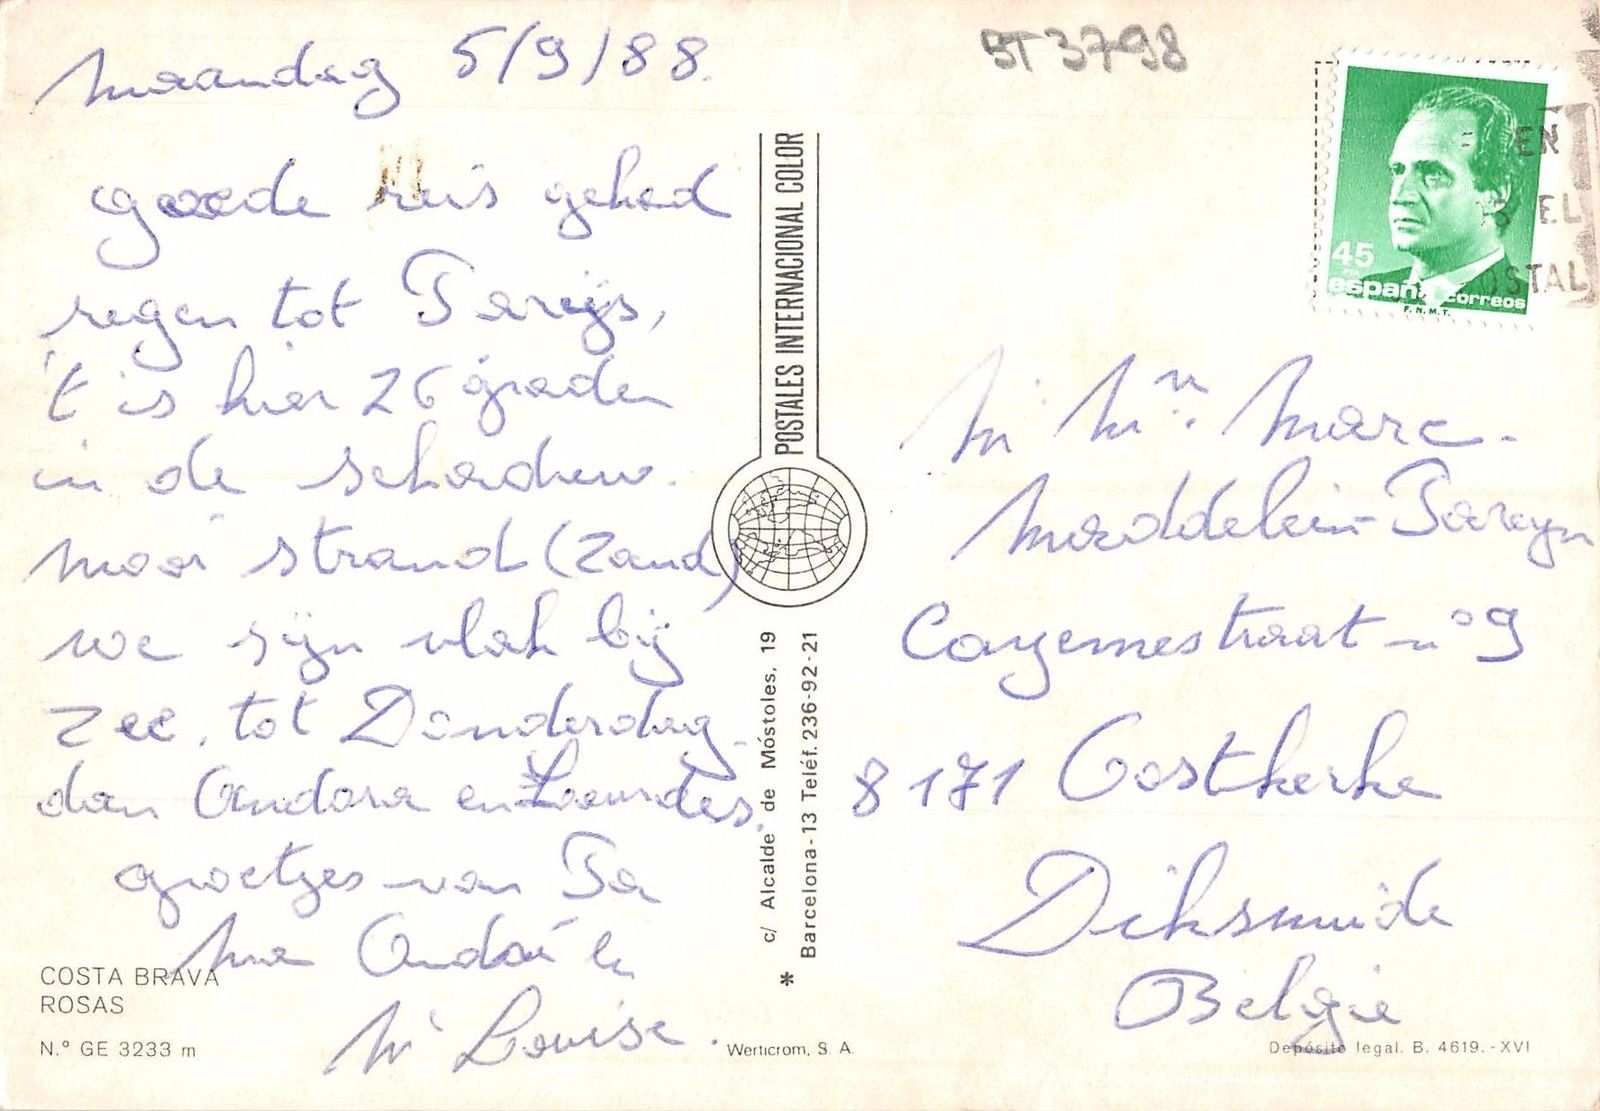 maandag 5/9/88.
goede reis gehad
regen tot Parijs,
't is hier 26 graden
in de schaduw.
mooi strand (zand)
we zijn vlak bij
zee, tot Donderdag
dan Andora en Lourdes.
groetjes van Pa
Ma André en
M Louise.
COSTA BRAVA
ROSAS
N.º GE 3233 m
POSTALES INTERNACIONAL COLOR
c/ Alcalde de Móstoles, 19
Barcelona-13 Teléf. 236-92-21
*
Werticrom, S. A.
BT3798
45
PTA
españa correos
F.N.M.T.
EN
EL
OSTAL
M. Mr. Marc -
Maddelein-Pareyn
Cayennestraat no 9
8171 Oostkerke
Diksmuide
Belgie
Depósito legal. B. 4619.-XVI